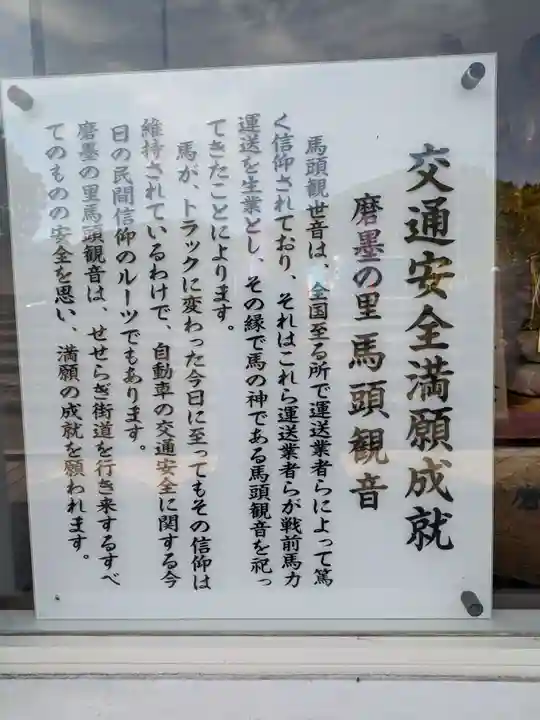 交通安全満願成就
磨墨の里馬頭観音
馬頭観世音は、全国至る所で運送業者らによって篤
く信仰されており、それはこれら運送業者らが戦前馬力
運送を生業とし、その縁で馬の神である馬頭観音を祀っ
てきたことによります。
馬が、トラックに変わった今日に至ってもその信仰は
維持されているわけで、自動車の交通安全に関する今
日の民間信仰のルーツでもあります。
磨墨の里馬頭観音は、せせらぎ街道を行き来するすべ
てのものの安全を思い、満願の成就を願われます。